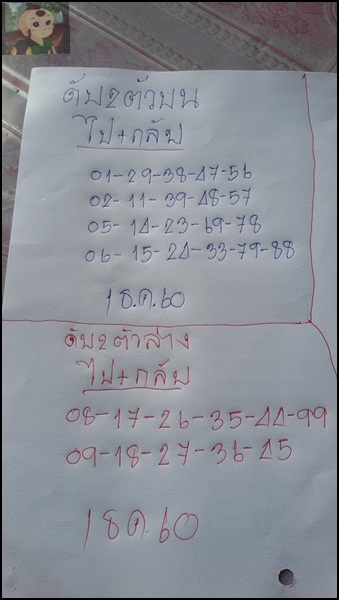 ดับ2ตัวบน
ไป+กลับ
01-29-38-47-56
02-11-39-48-57
05-14-23-69-78
06-15-24-33-79-88
1ธ.ค.60
ดับ2ตัวล่าง
ไป+กลับ
08-17-26-35-44-99
09-18-27-36-45
1ธ.ค.60